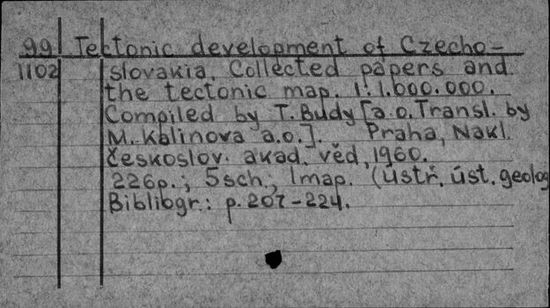 99 Tectonic development of Czecho-
1102 slovakia. Collected papers and
the tectonic map. 1:1.000.000.
Compiled by T. Budy [a.o. Transl. by
M. Kalinova a.o.]. Praha, Nakl.
českoslov. akad. věd, 1960.
226p.; 5sch.; 1map. (ústř. úst. geolog
Biblibgr.: p. 207-224.